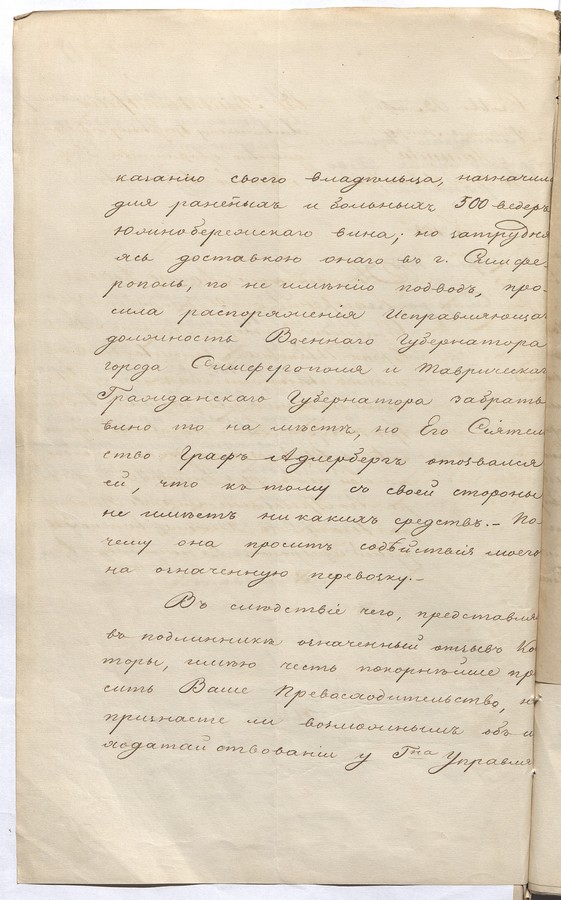 казанію своего владѣльца, назначила
для раненыхъ и больныхъ 500 ведеръ
южнобережскаго вина; но затрудня
ясь доставкою онаго въ г. Симфе-
рополь, по не имѣнію подводъ, про-
сила распоряженія Исправляюща
должность Военнаго Губернатора
города Симферополя и Таврическаг
Гражданскаго Губернатора забрать
вино то на мѣстѣ, но Его Сіятель
ство Графъ Адлербергъ отозвался
ей, что къ тому съ своей стороны
не имѣетъ никакихъ средствъ. – По-
чему она проситъ содѣйствія моего
на означенную перевозку. –
Въ слѣдствіе чего, представляя
въ подлинникѣ означенный отзывъ Кон
торы, имѣю честь покорнѣйше про
сить Ваше Превосходительство, не
признаете ли возможнымъ объ и
ходатайствованіи у Гна Управля